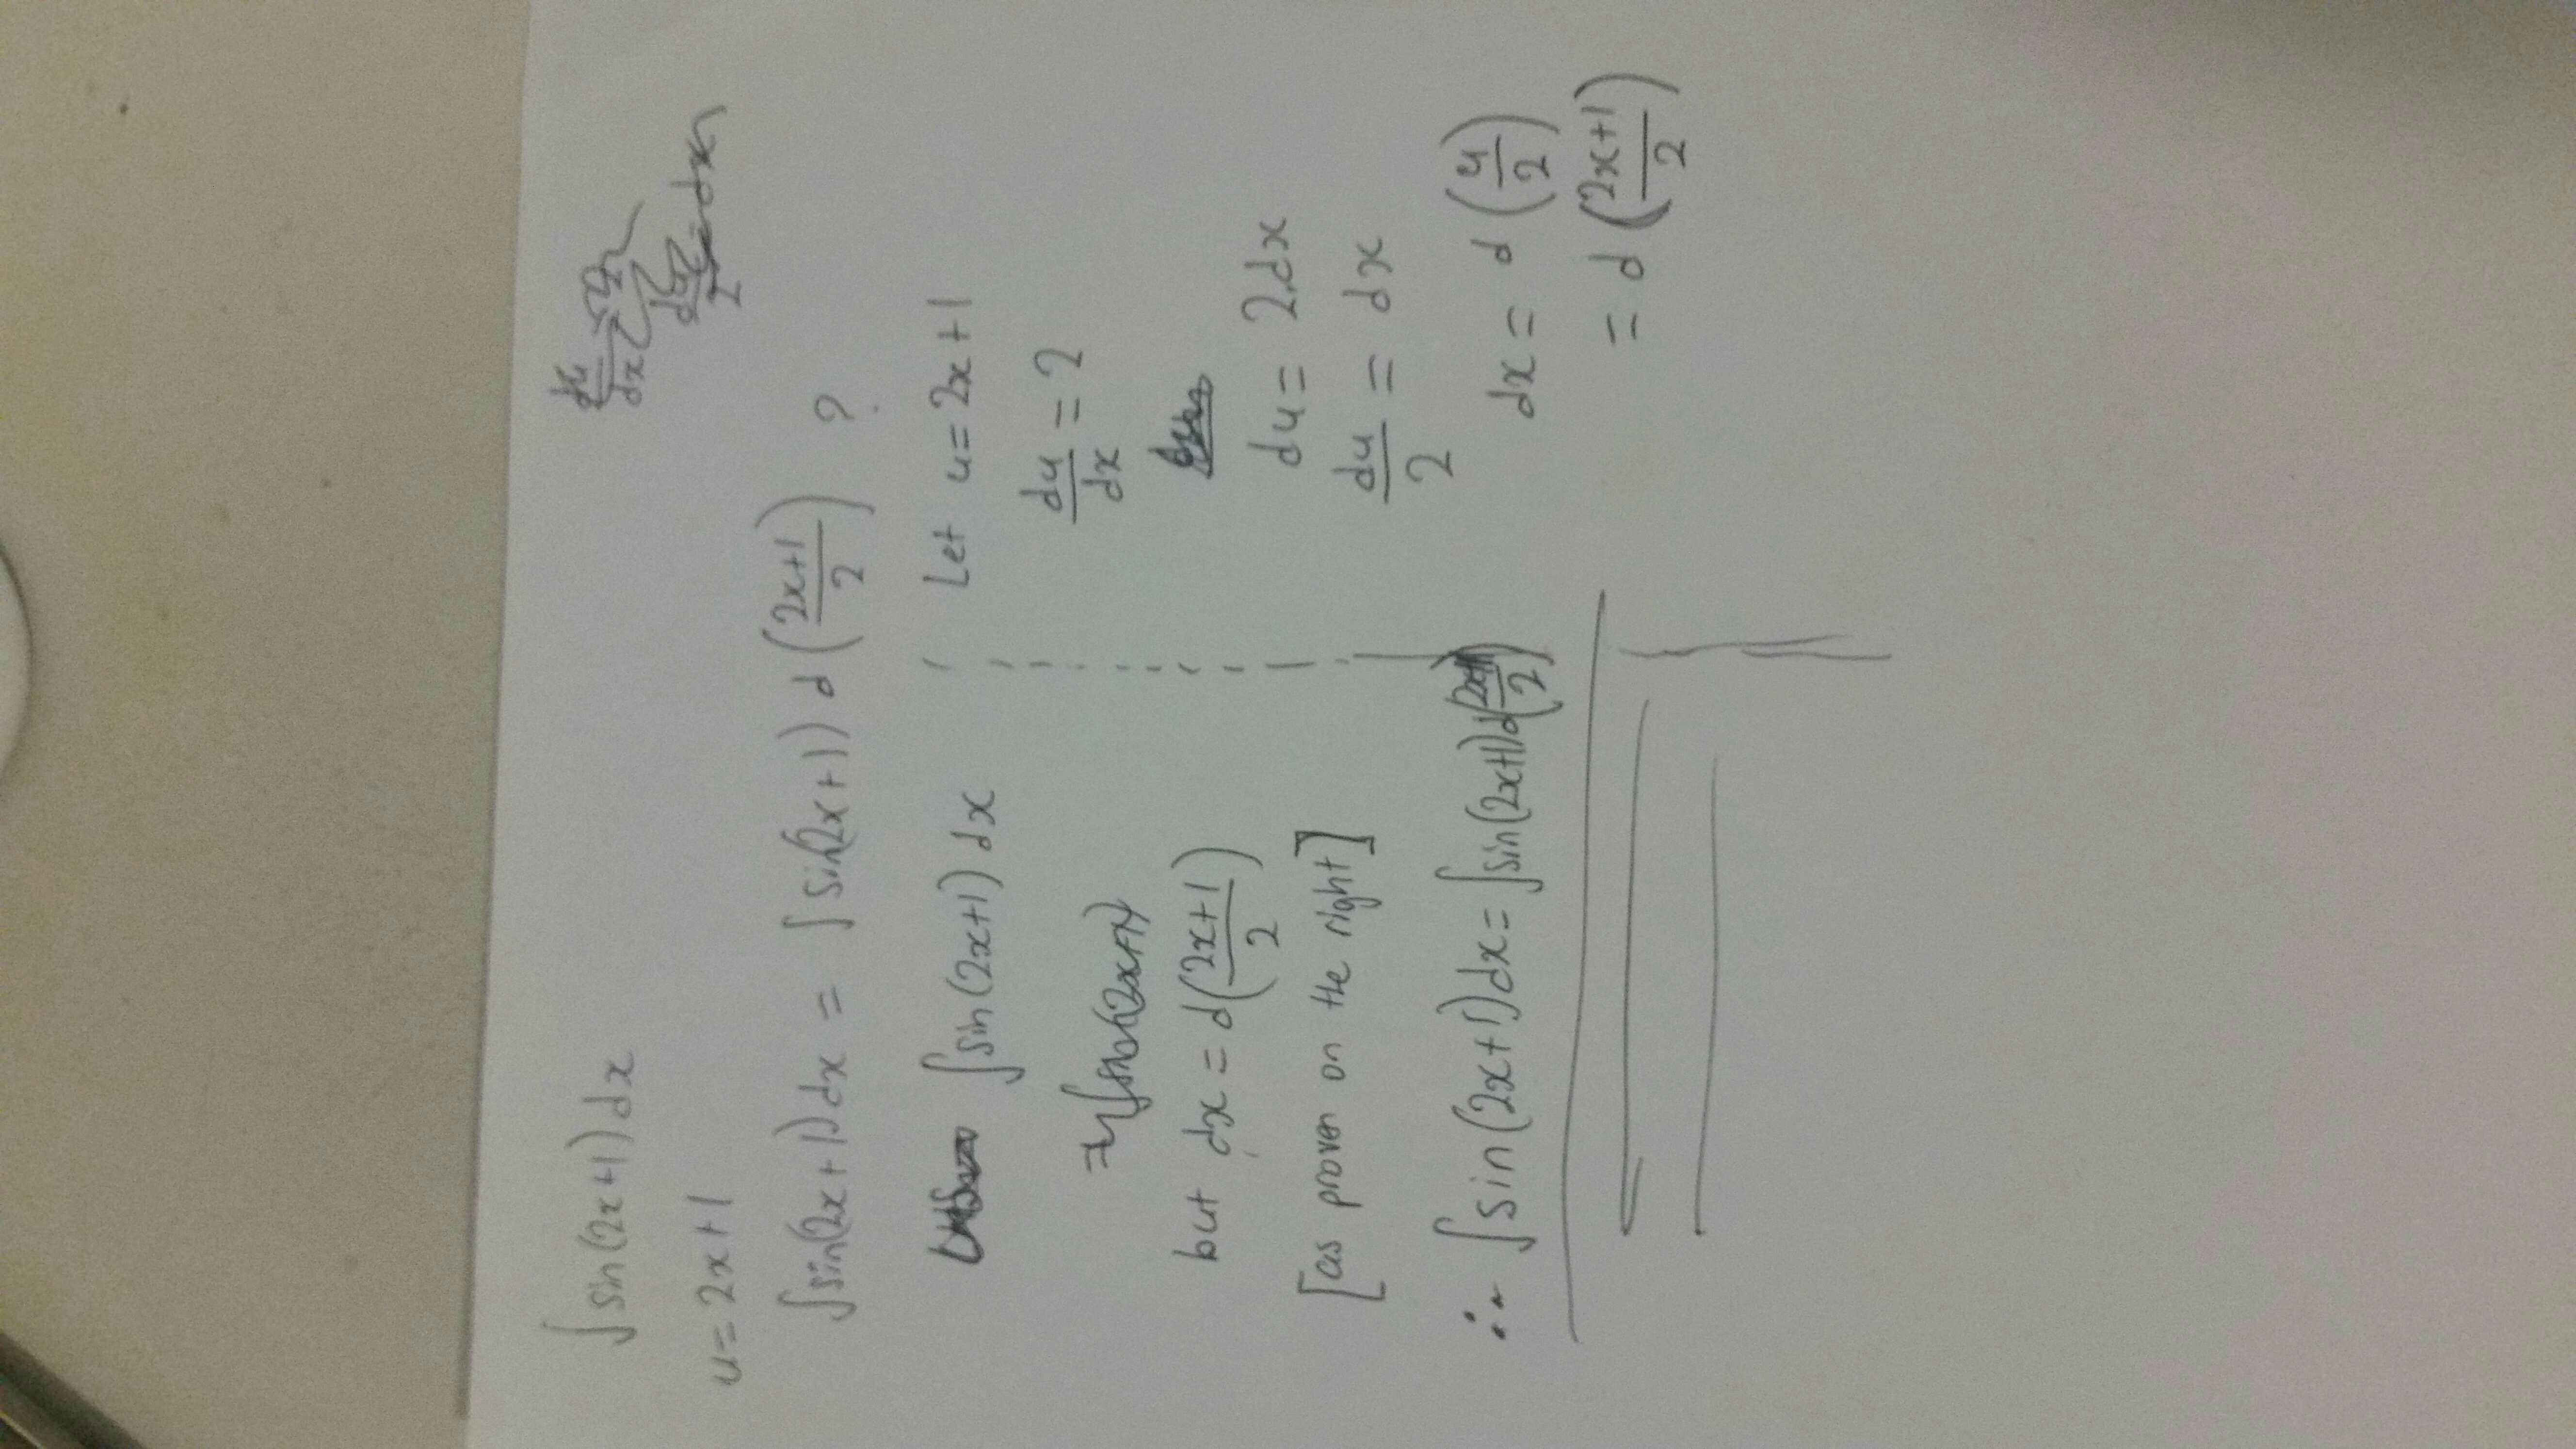 ∫ sin(2x+1) dx
u = 2x+1
∫sin(2x+1)dx = ∫ sin(2x+1)) d(2x+1/2) ?
∫sin(2x+1) dx
but dx = d(2x+1/2)
[as proven on the right]
∴ ∫sin(2x+1)dx = ∫sin(2x+1)d(2x+1/2)
Let u = 2x+1
du/dx = 2
du = 2dx
du/2 = dx
dx = d(u/2)
= d(2x+1/2)